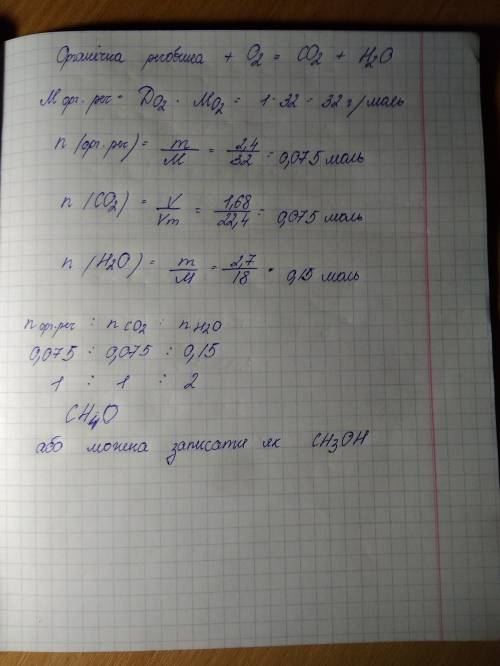 Органічна речовина + O2 = CO2 + H2O
M орг. реч = DO2 · MO2 = 1 · 32 = 32 г/моль
n (орг. реч) = m/M = 2,4/32 = 0,075 моль
n (CO2) = V/Vm = 1,68/22,4 = 0,075 моль
n (H2O) = m/M = 2,7/18 = 0,15 моль
n орг.реч : n CO2 : n H2O
0,075 : 0,075 : 0,15
1 : 1 : 2
CH4O
або можна записати як CH3OH